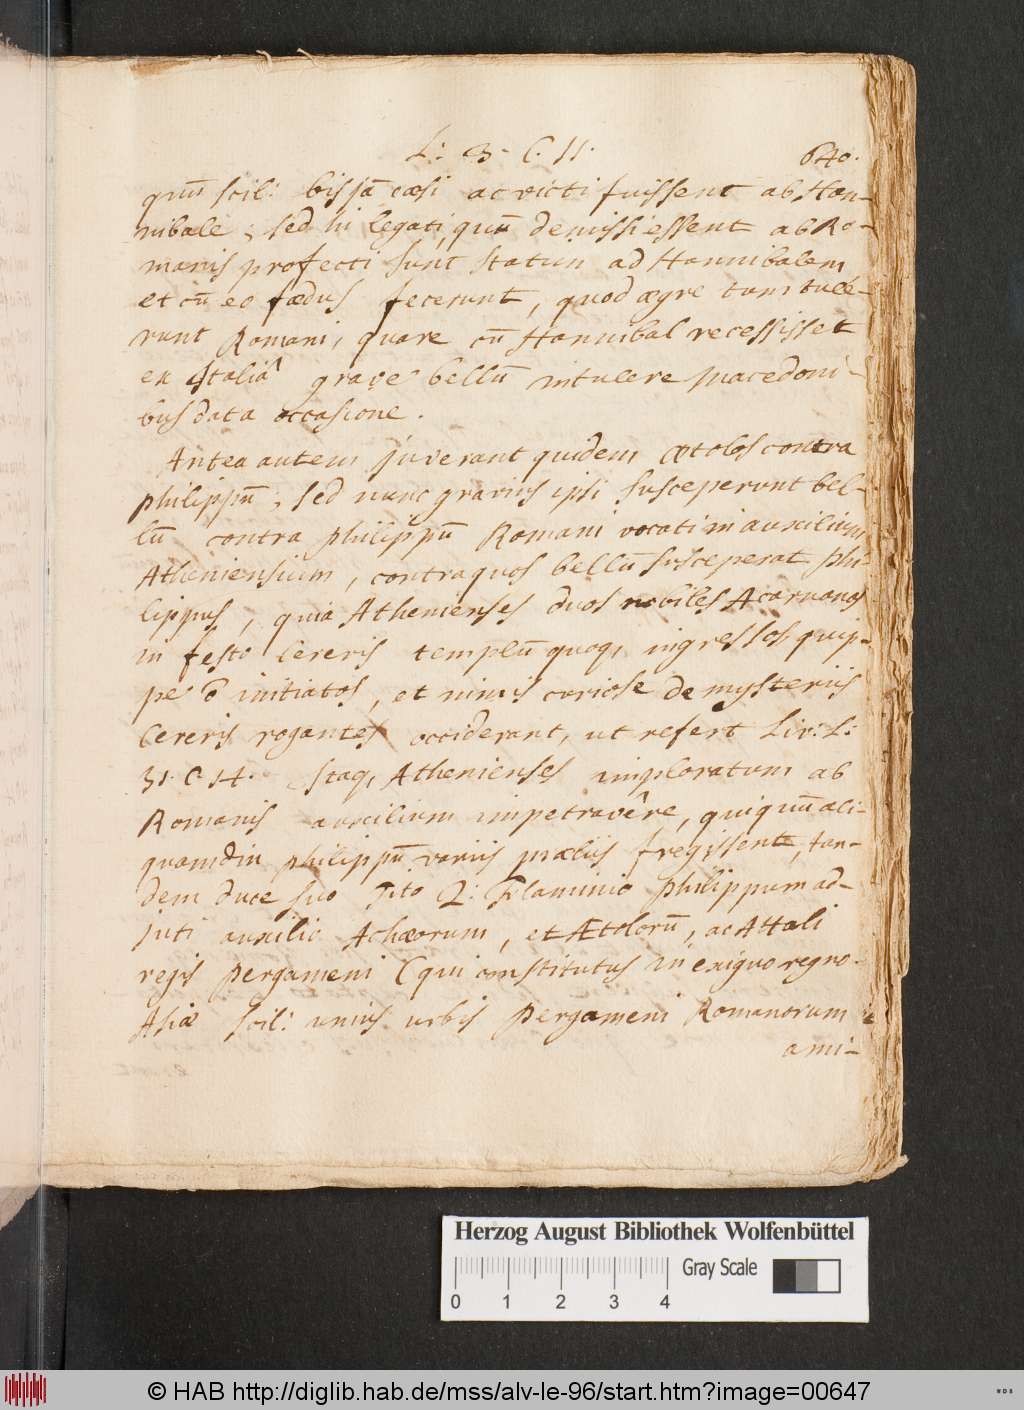 L: 3. C. 11. 640.
quū scil: bis jā cæsi ac victi fuissent ab Han-
nibale, sed hi legati, quū demissi essent ab Ro-
manis profecti sunt statim ad Hannibalem
et cū eo fædus fecerunt, quod ægre tam tule-
runt Romani, quare cū Hannibal recessisset
ex Italiâ grave bellū intulere Macedoni-
bus data occasione.
Antea autem juverant quidem Ætolos contra
Philippū, sed nunc gravius ipsi susceperunt bel-
lū contra Philippū Romani vocati in auxilium
Atheniensium, contra quos bellū susceperat Phi-
lippus, quia Athenienses duos nobiles Acarnanos
in festo Cereris templū quoq, ingressos quip-
pe ō initiatos, et nimis curiose de mysteriis
Cereris rogantes occiderant, ut refert Liv: L:
31. C. 14. Itaq, Athenienses imploratum ab
Romanis auxilium impetravêre, qui quūm ali-
quamdiu Philippū variis præliis fregissent, tan-
dem duce suo Tito Q: Flaminio Philippum ad-
juti auxilio Achæorum, et Ætolorū, ac Attali
regis Pergameni (qui constitutus in exiguo regno
Asiæ scil: unius urbis Pergameni Romanorum
ami-
Herzog August Bibliothek Wolfenbüttel
Gray Scale
0 1 2 3 4
© HAB http://diglib.hab.de/mss/alv-le-96/start.htm?image=00647